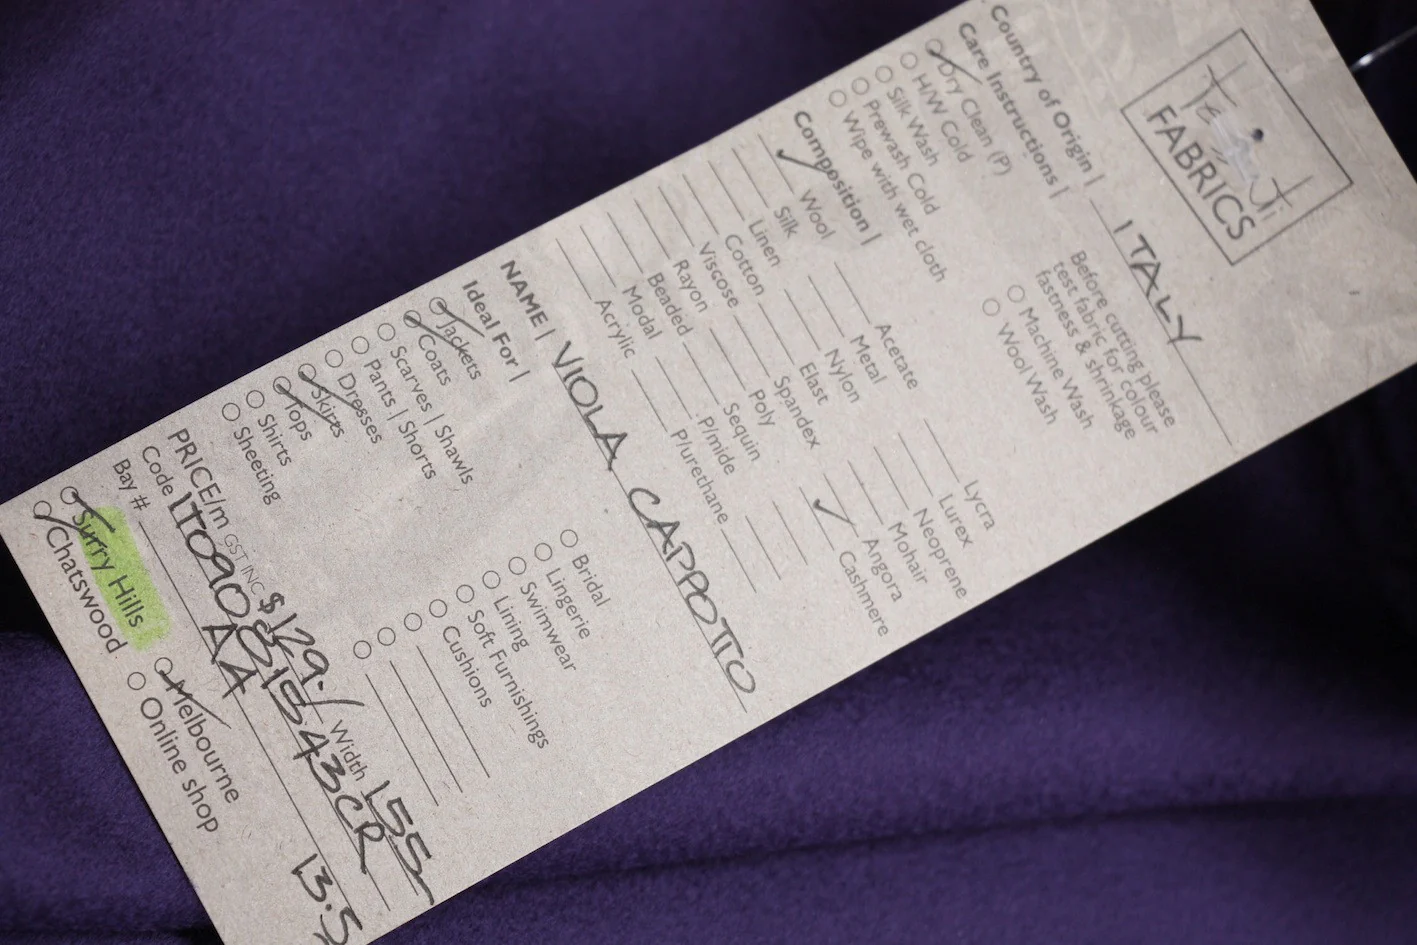 Te ti
FABRICS
Country of Origin | ITALY
Care Instructions |
Before cutting please
test fabric for colour
fastness & shrinkage
Dry Clean (P)
H/W Cold
Silk Wash
Prewash Cold
Wipe with wet cloth
Machine Wash
Wool Wash
Composition |
Wool
Silk
Linen
Cotton
Viscose
Rayon
Beaded
Modal
Acrylic
Acetate
Metal
Nylon
Elast
Spandex
Poly
Sequin
P/mide
P/urethane
Lycra
Lurex
Neoprene
Mohair
Angora
Cashmere
NAME | VIOLA CAPPOTTO
Ideal For |
Jackets
Coats
Scarves | Shawls
Pants | Shorts
Dresses
Skirts
Tops
Shirts
Sheeting
Bridal
Lingerie
Swimwear
Lining
Soft Furnishings
Cushions
PRICE/m GST INC $129./ Width 155
Code 1T090815543CR
Bay # AA 13.5
Surry Hills
Chatswood
Melbourne
Online shop